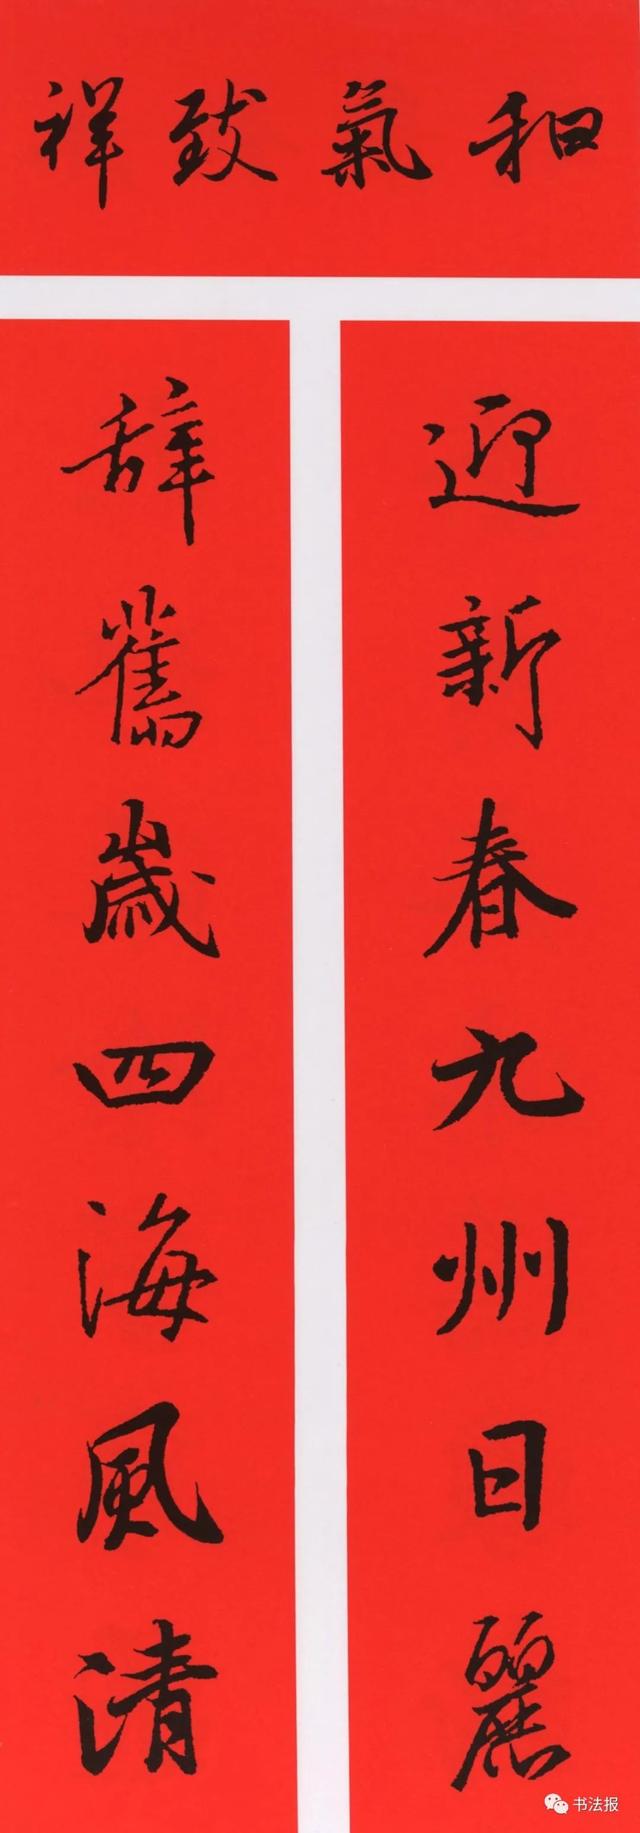 和氣致祥
迎新春九州日麗
辭舊歲四海風清
书法报